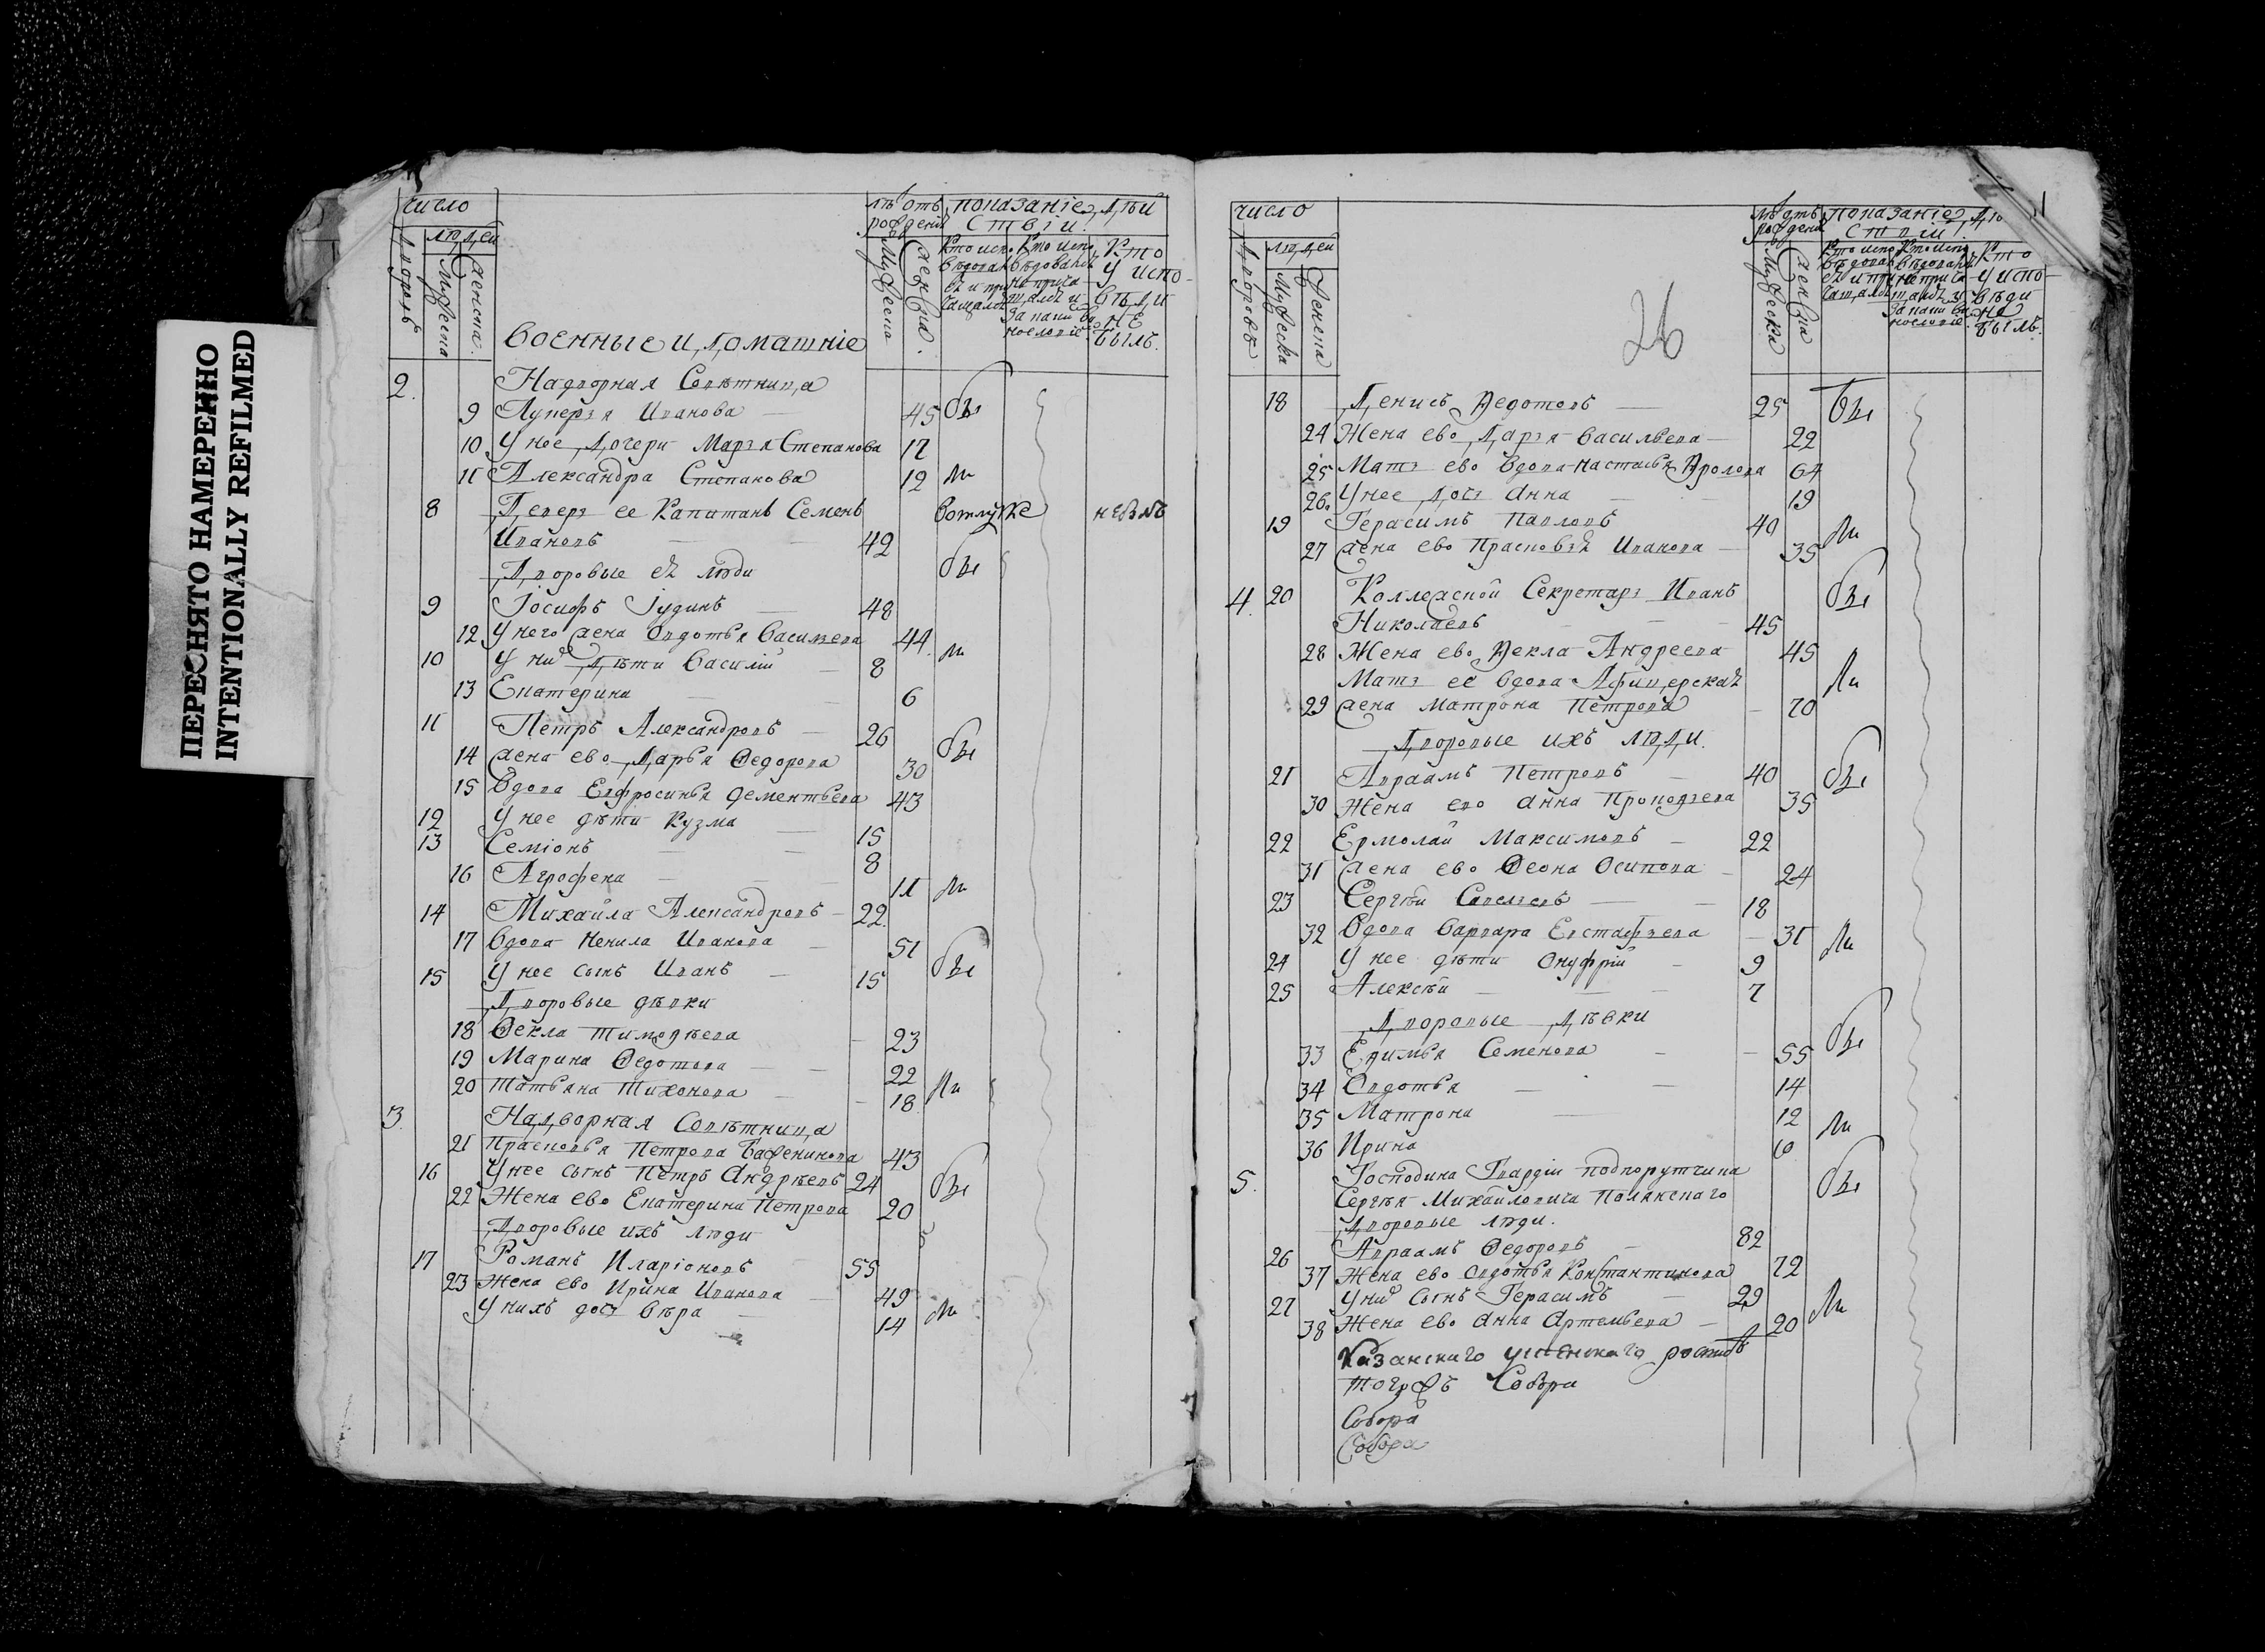 ПЕРЕСНЯТО НАМЕРЕННО
INTENTIONALLY REFILMED
число
людеи
дворовъ
мужеска
женска
военные и домашніе
лѣ отъ рожденія
мужеска
женска
показаніе дѣи
ствіи
Кто испо
Кто испо
Кто
у испо
вѣди
не
былъ
2. Надворная Совѣтница
9 Луκερья Иванова 45 бы
10 У нее дочери Марья Степанова 17
11 Александра Степанова 12 ли
8 Деверь ее Капитанъ Семенъ вотлуке
Ивановъ 42
Дворовые еѣ люди бы
9 Іосифъ Іудинъ 48
12 У него жена Овдотья Васильева 44
10 У них дѣти Василій 8 ли
13 Екатерина 6
11 Петръ Александровъ 26
14 жена ево Дарья Ѳедорова 30 бы
15 Вдова Евфросинья Дементьева 43
12 У нее дѣти Кузма 15
13 Семіонъ 8
16 Агрофена 11 ли
14 Михайла Александровъ 22
17 Вдова Ненила Иванова 51
15 У нее сынъ Иванъ 15 бы
Дворовые дѣвки
18 Ѳекла Тимоѳеева 23
19 Марина Ѳедотова 22
20 Татьяна Тихонова 18 ли
3. Надворная Совѣтница
21 Прасковья Петрова Баженинова 43
16 У нее сынъ Петръ Андрѣевъ 24 бы
22 Жена ево Екатерина Петрова 20
Дворовые ихъ люди
17 Романъ Иларіоновъ 55
23 Жена ево Ирина Иванова 49
У нихъ дочь Вѣра 14 ли
число
людеи
дворовъ
мужеска
женска
26
лѣ отъ рожденія
мужеска
женска
показаніе дѣ
ствіи
Кто испо
Кто испо
Кто
у испо
вѣди
не
былъ
18 Денисъ Ѳедотовъ 25 бы
24 Жена ево Дарья Васильева 22
25 Мать ево вдова Настасья Фролова 64
26. У нее дочь Анна 19
19 Герасимъ Павловъ 40 ли
27 жена ево Прасковья Иванова 35
4. 20 Коллежской Секретарь Иванъ бы
Николаевъ 45
28 Жена ево Ѳекла Андреева 45
Мать ее вдова Афицерская ли
29 жена Матрона Петрова 70
Дворовые ихъ люди.
21 Авраамъ Петровъ 40 бы
30 Жена ево Анна Прокофьева 35
22 Ермолай Максимовъ 22
31 жена ево Ѳеона Осипова 24
23 Сергѣи Савельевъ 18
32 Вдова Варвара Евстафьева 31 ли
24 У нее дѣти Онуфрій 9
25 Алексѣи 7
Дворовые дѣвки
33 Еѳимья Семенова 55 бы
34 Овдотья 14
35 Матрона 12
36 Ирина 10 ли
5. Господина Гвардіи подпорутчика
Сергѣя Михайловича Полянскаго бы
Дворовые люди.
26 Авраамъ Ѳедоровъ 82
37 Жена ево Овдотья Константинова 72
27 У них сынъ Герасимъ 29
38 Жена ево Анна Артемьева 20 ли
Казанскаго
Собора
Собора
Собора